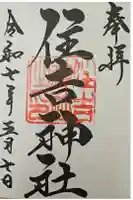 奉拝
住吉神社
令和七年三月七日